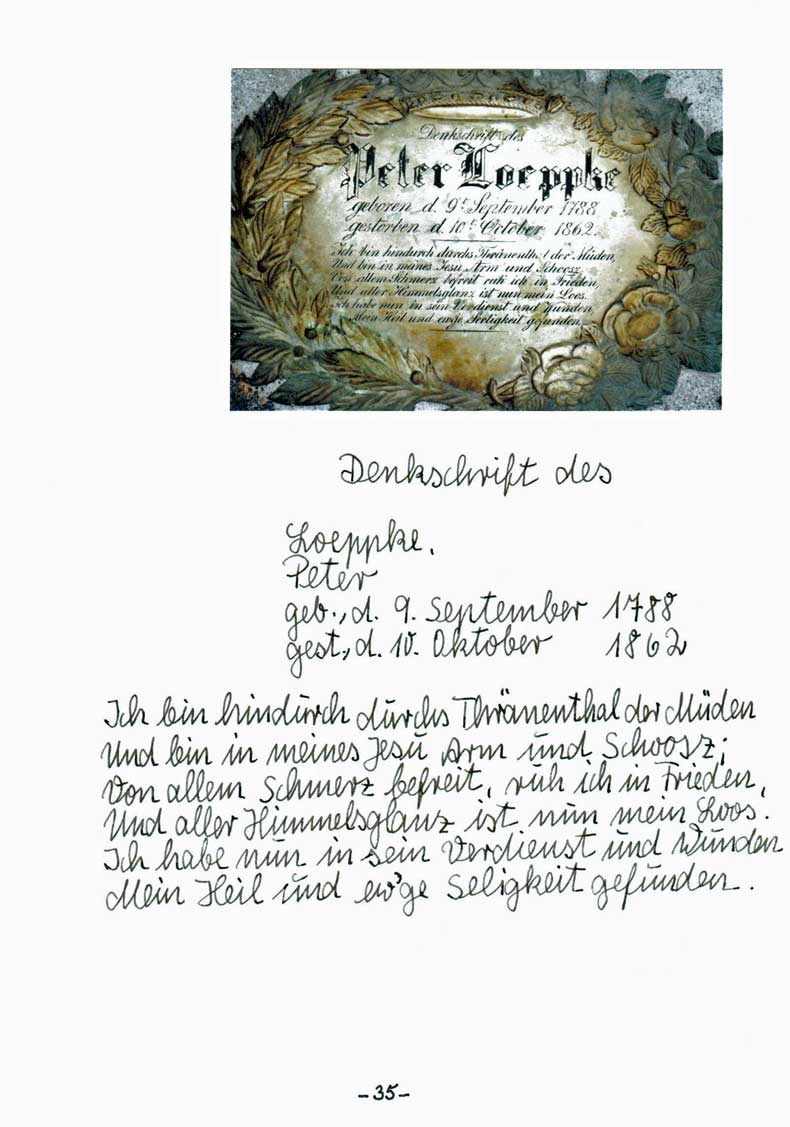 Denkschrift des
Peter Loeppke
geboren d. 9t September 1788
gestorben d. 10t October 1862.
Ich bin hindurch durchs Thränenthal der Müden,
Und bin in meines Jesu Arm und Schoosz;
Von allem Schmerz befreit ruh ich in Frieden,
Und aller Himmelsglanz ist nun mein Loos.
Ich habe nun in sein Verdienst und Wunden,
Mein Heil und ew'ge Seeligkeit gefunden.
Denkschrift des
Loeppke,
Peter
geb., d. 9. September 1788
gest., d. 10. Oktober 1862
Ich bin hindurch durchs Thränenthal der Müden
Und bin in meines Jesu Arm und Schoosz;
Von allem Schmerz befreit, ruh ich in Frieden,
Und aller Himmelsglanz ist nun mein Loos.
Ich habe nun in sein Verdienst und Wunden
Mein Heil und ew'ge Seligkeit gefunden.
-35-